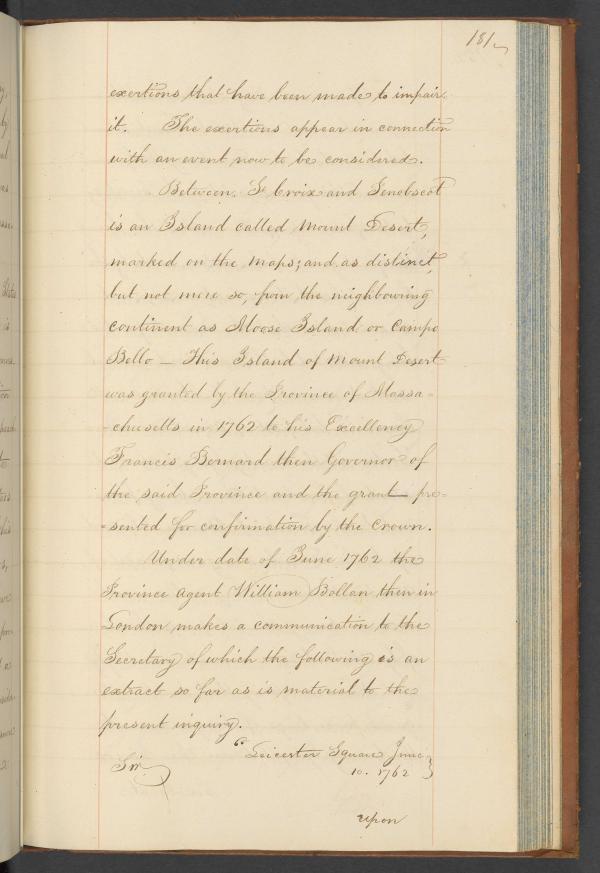 181
exertions that have been made to impair
it. The exertions appear in connection
with an event now to be considered.
Between St Croix and Penobscot
is an Island called Mount Desert,
marked on the maps; and as distinct,
but not more so, from the neighbouring
continent as Moose Island or Campo
Bello — This Island of Mount Desert
was granted by the Province of Massa-
-chusetts in 1762 to his Excellency
Francis Bernard then Governor of
the said Province and the grant pre-
-sented for confirmation by the Crown.
Under date of June 1762 the
Province Agent William Bollan then in
London makes a communication to the
Secretary of which the following is an
extract so far as is material to the
present inquiry.
"Leicester Square June
10. 1762
Sir
upon